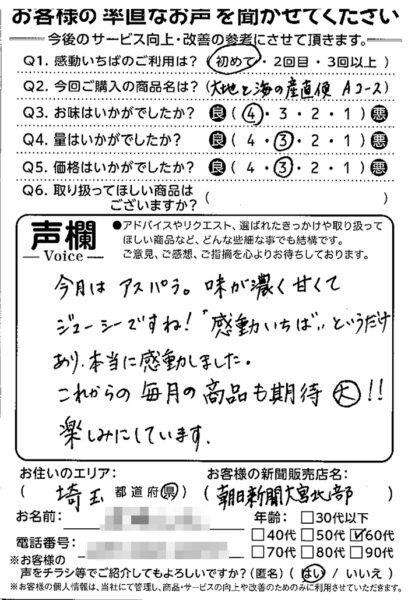 お客様の率直なお声を聞かせてください
今後のサービス向上・改善の参考にさせて頂きます。
Q1. 感動いちばのご利用は? (初めて・2回目・3回以上)
Q2. 今回ご購入の商品名は? (大地と海の産直便 Aコース)
Q3. お味はいかがでしたか? 良(4・3・2・1)悪
Q4. 量はいかがでしたか? 良(4・3・2・1)悪
Q5. 価格はいかがでしたか? 良(4・3・2・1)悪
Q6. 取り扱ってほしい商品は
ございますか? ( )
声欄
Voice
●アドバイスやリクエスト、選ばれたきっかけや取り扱って
ほしい商品など、どんな些細な事でも結構です。
ご意見、ご感想、ご指摘を心よりお待ちしております。
今月はアスパラ。味が濃く甘くて
ジューシーですね!「感動いちば」というだけ
あり、本当に感動しました。
これからの毎月の商品も期待大!!
楽しみにしています。
お住いのエリア:
(埼玉 都道府県)
お客様の新聞販売店名:
(朝日新聞大宮北部)
お名前:
電話番号:
年齢: □30代以下
□40代 □50代 ☑60代
□70代 □80代 □90代
※お客様の
声をチラシ等でご紹介してもよろしいですか?(匿名) (はい / いいえ)
※お客様の個人情報は、当社にて管理し、商品・サービスの向上や改善のためのみに利用させていただきます。